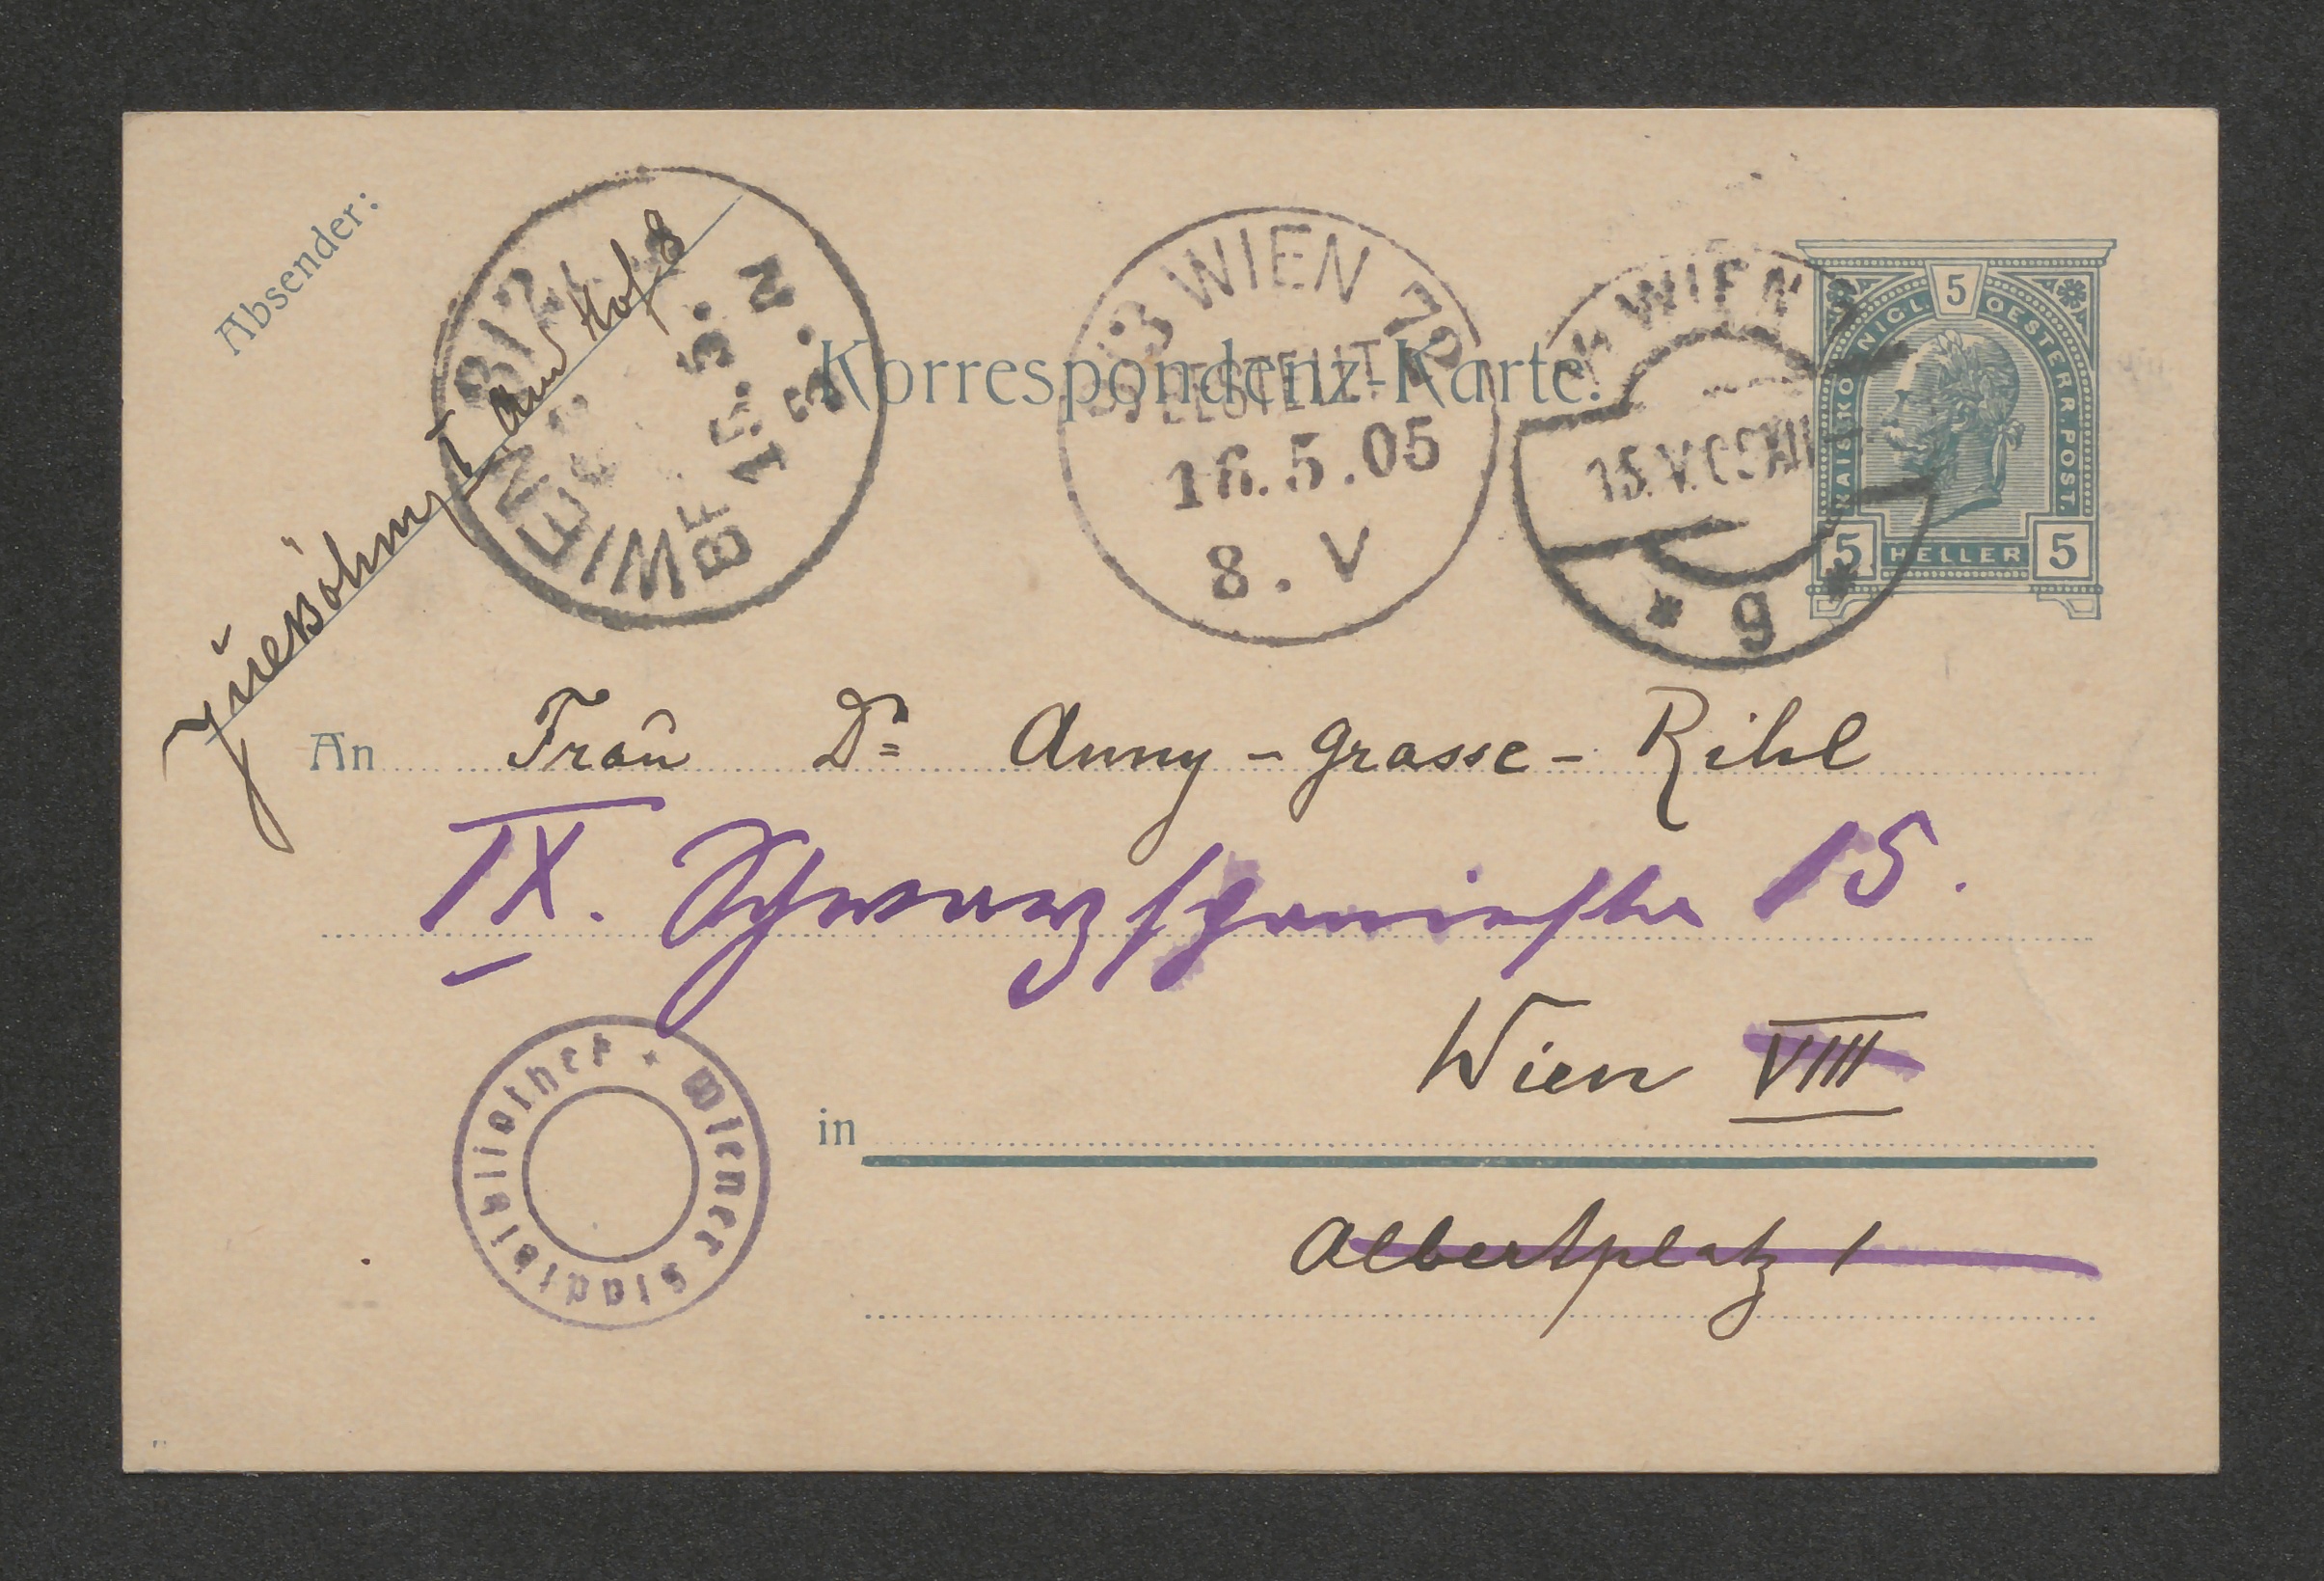 Absender:
I Am Hof 8
WIEN 8/1
15.5.
3.N
Korrespondenz-Karte.
8/3 WIEN 70
BESTELLT
16.5.05
8.V
WIEN
15.V.05
* g *
KAIS. KÖNIGL. OESTERR. POST.
5
5 HELLER 5
An Frau Dr Anny-Grasse-Rihl
IX. Schwarzspanierstr 15.
in Wien VIII
Albertplatz 1
Wiener Stadtbibliothek *